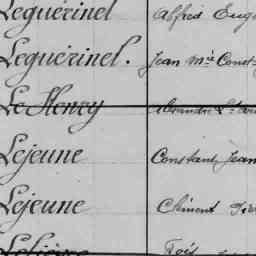 Leguérinel Alfred Eug
Leguérinel. Jean Mie Const
Le Henry Alexandre
Lejeune Constant Jean
Lejeune Clément
Lelièvre Fois